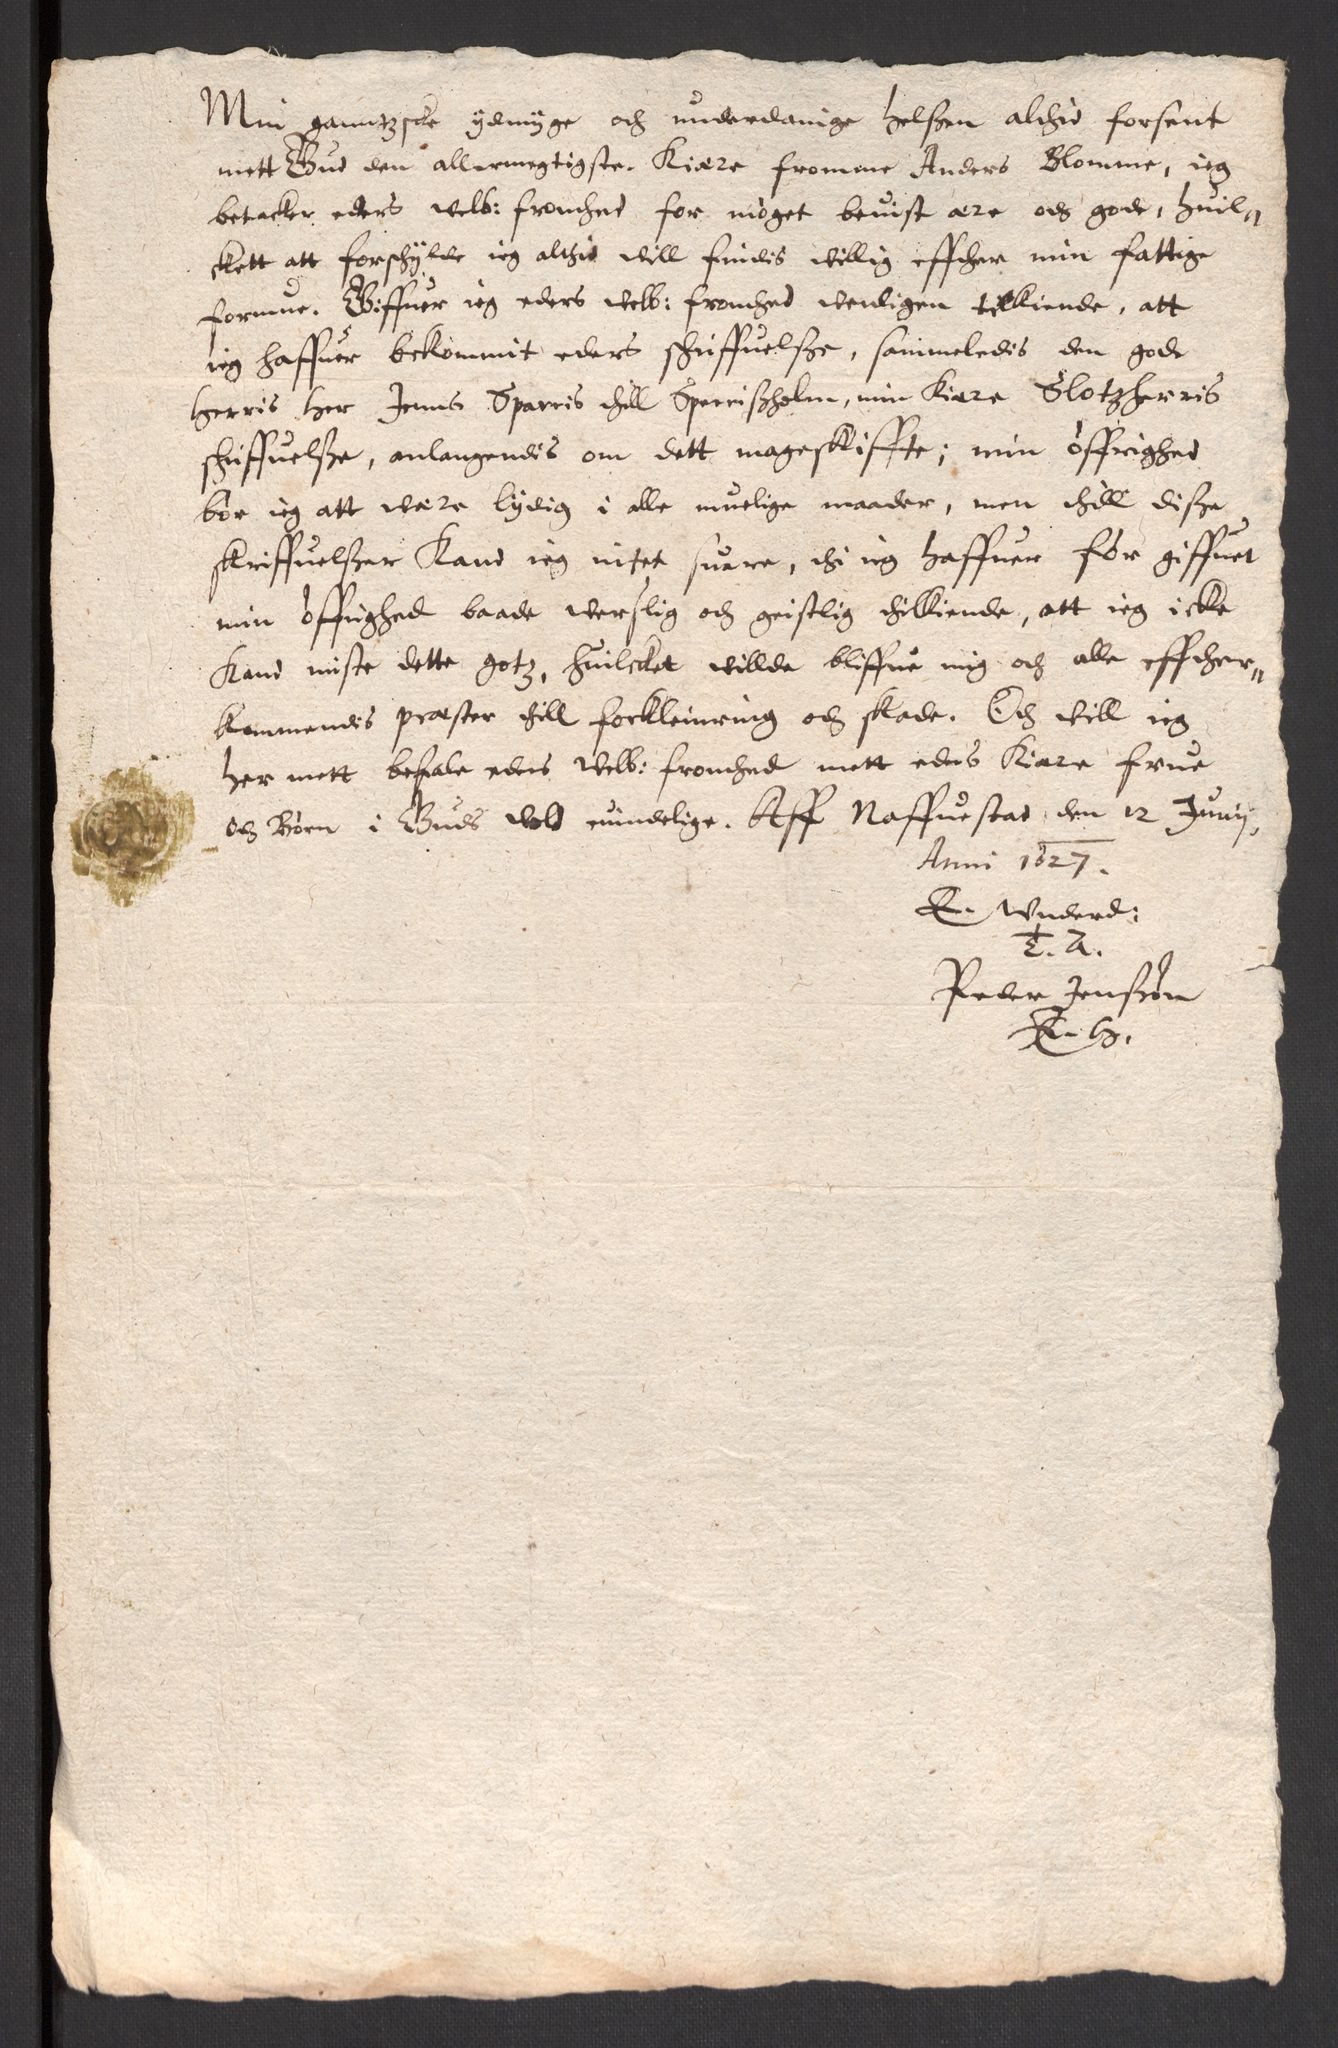 Min ganntzske ydmyge och underdanige helszen altid forsent
mett Gud den allermegtigste. Kiære fromme Anders Blomme, ieg
betacker eders velb: fromhed for møget beuist ære och gode, huil„
ckett att forskylde ieg altid vill findis villig effther min fattige
formue. Giffuer ieg eders velb: fromhed venligen tilkiende, att
ieg haffuer bekommit eders skriffuelsze, sammeledis den gode
Herris her Jenns Sparris thill Sperriszholm, min kiære Slotzherris
skriffuelsze, anlangendis om dett mageskiffte; min öffrighed
bör ieg att være lydig i alle muelige maader, men thill disze
skriffuelszer kand ieg intet suare, thi ieg haffuer för giffuet
min öffrighed baade verslig och geistlig thilkiende, att ieg icke
kand miste dette gotz, huilcket villde bliffue mig och alle effther„
kommendis præster thill forkleinring och skade. Och vill ieg
her mett befale eders velb: fromhed mett eders kiære frue
och Börn i Guds vold euindelige. Aff Naffuestad den 12 Junij,
Anni 1627.
E. Underd:
T. A.
Peder Jenszön
E. H.